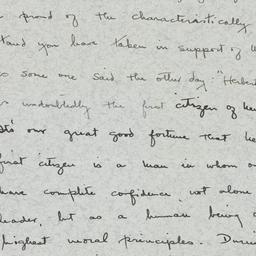 proud of the characteristically
stand you have taken in support of
some one said the other day: "Herbert
undoubtedly the first citizen of New
It's our great good fortune that he
first citizen is a man in whom
have complete confidence not alone
leader, but as a human being
highest moral principles. Durin